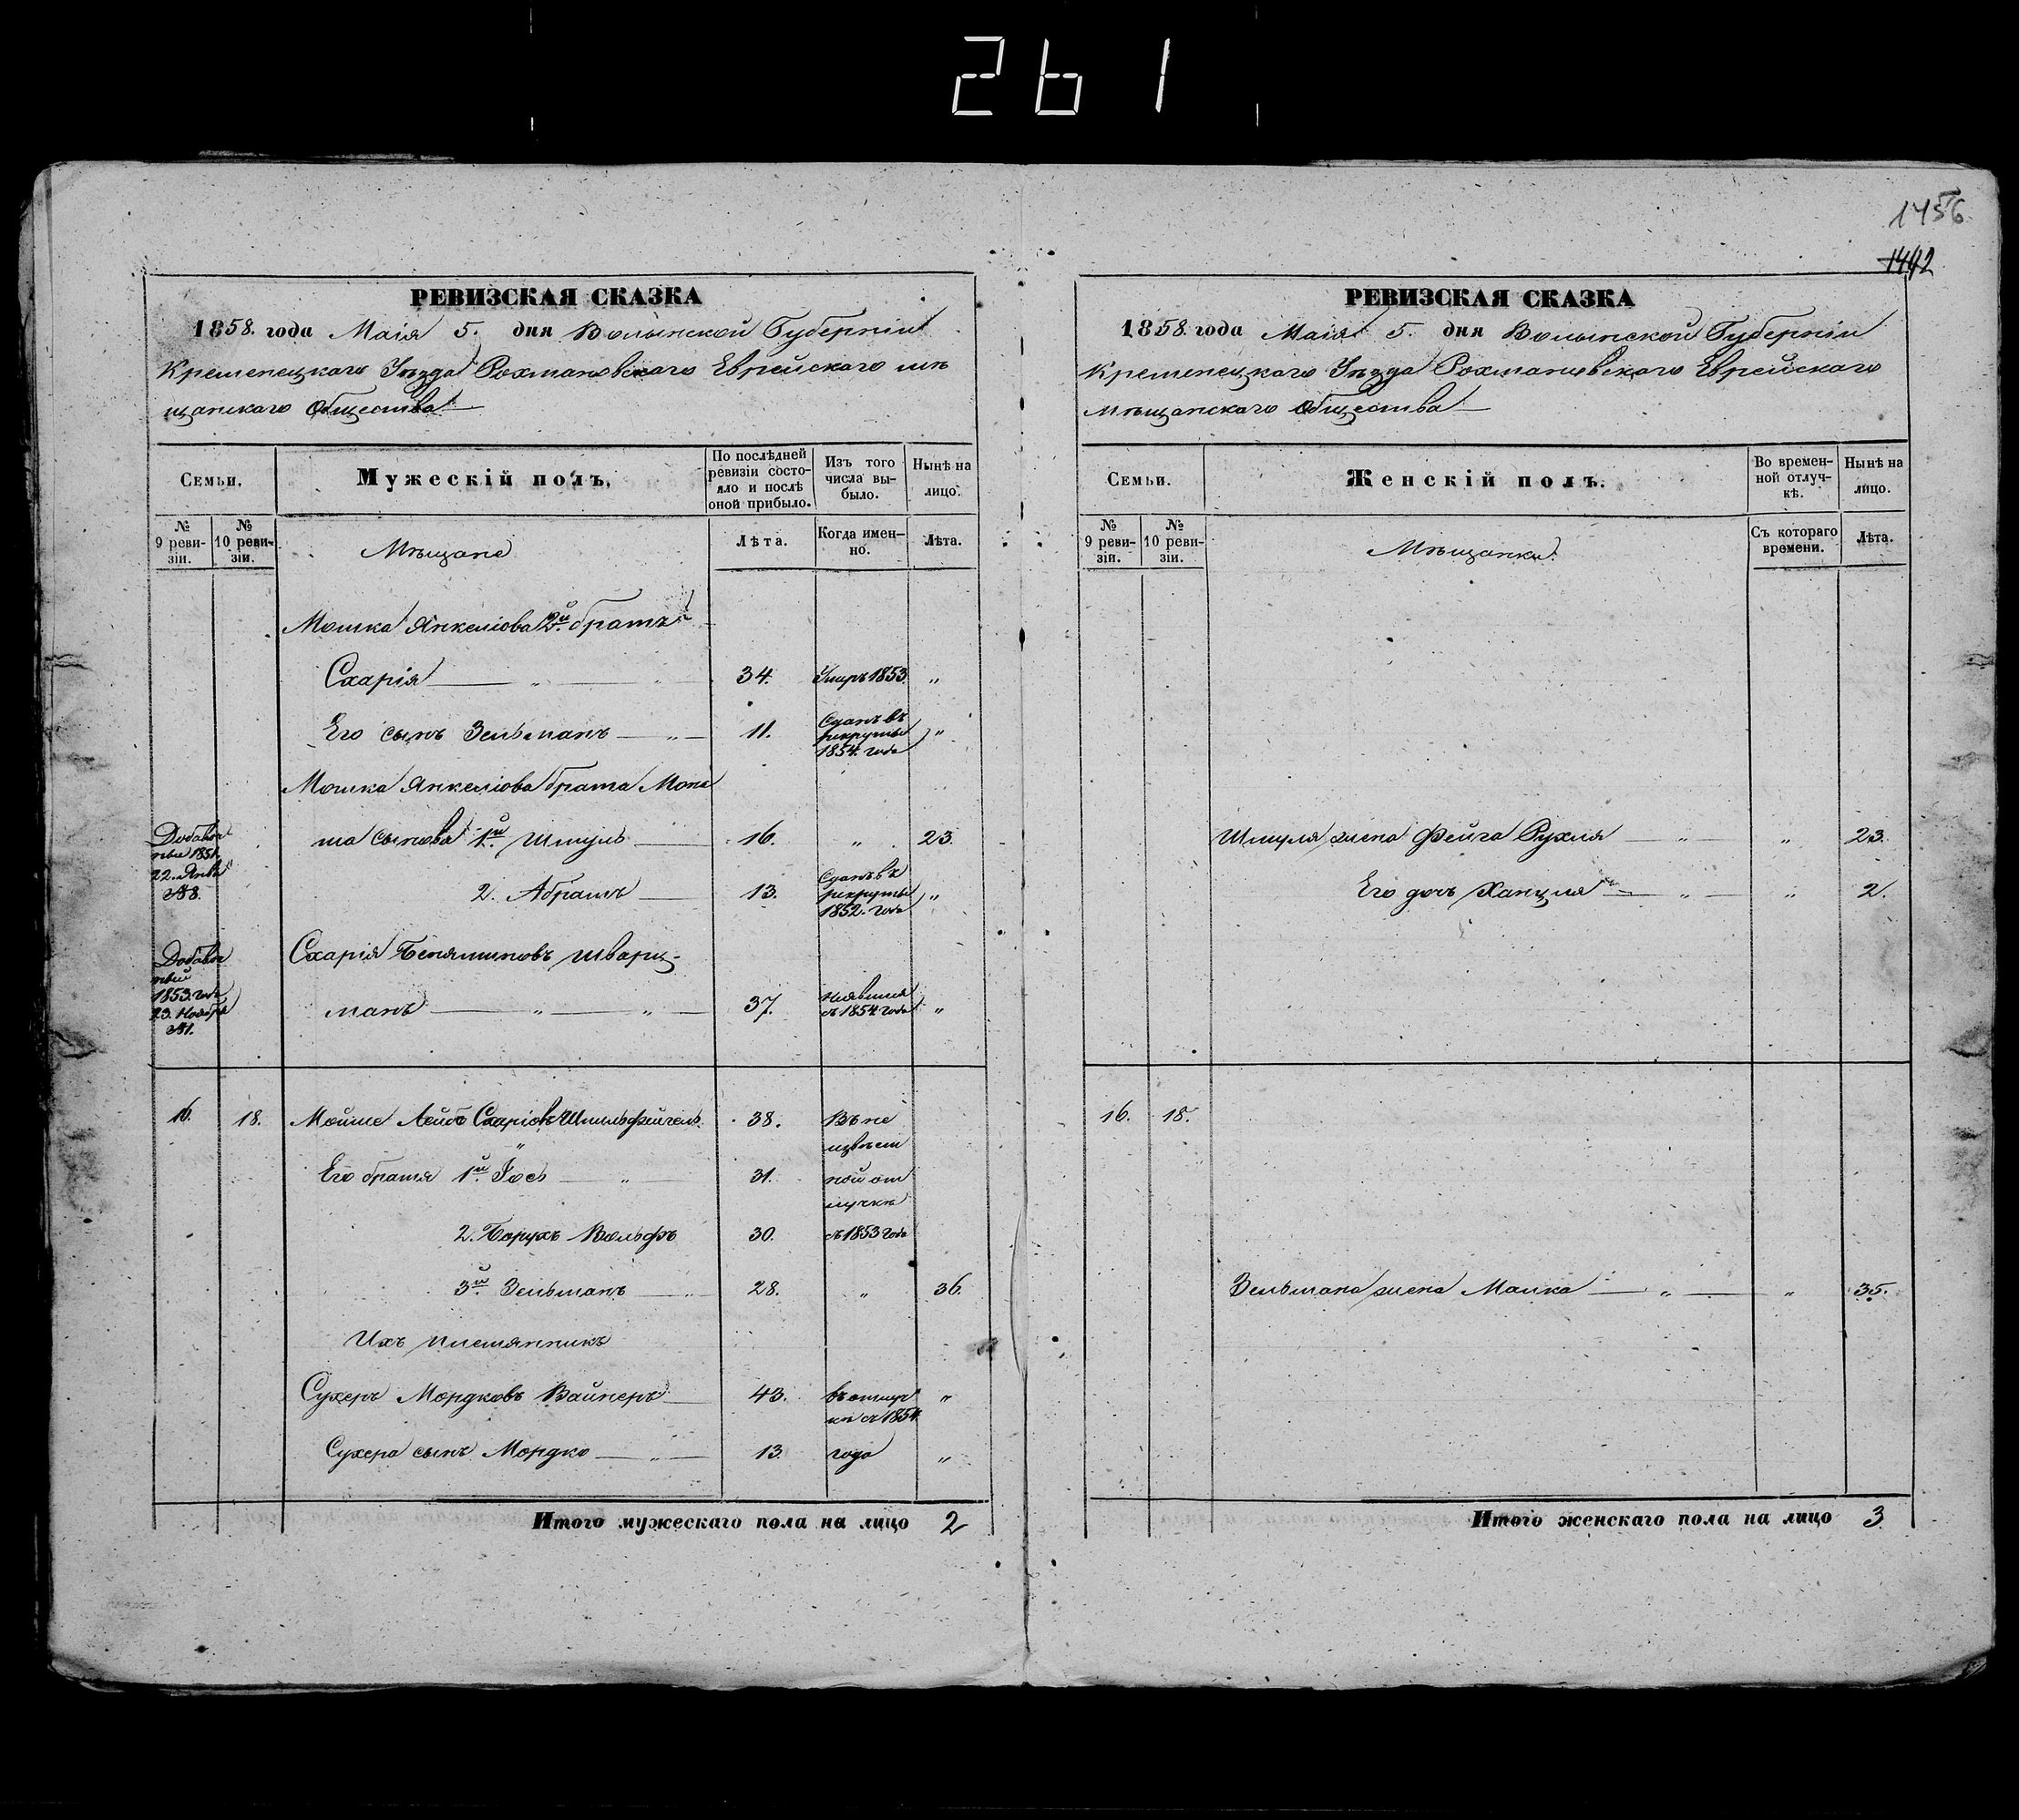 261
1456
1442
РЕВИЗСКАЯ СКАЗКА
1858. года Маія 5. дня Волынской Губерніи
Кременецкаго Уѣзда Рохмановскаго Еврейскаго мѣ
щанскаго Общества
Семьи.
Мужескій полъ.
По послѣдней ревизіи состояло и послѣ оной прибыло.
Изъ того числа выбыло.
Нынѣ на лицо.
№ 9 ревизіи.
№ 10 ревизіи.
Мѣщане
Лѣта.
Когда именно.
Лѣта.
Мошка Янкеліова 2й братъ
Схарія 34. Умръ 1853. „
Его сынъ Зельманъ 11. Сданъ въ рекруты 1854. года „
Мошка Янкеліова брата Мона
Добавочные 1851. 22. Янва № 8.
ша сыновья 1й Шмуль 16. „ 23.
2. Абрамъ 13. Сданъ въ рекруты 1852. года „
Добавочный 1853. года 23. Ноября № 1.
Схарія Беняминовъ Шварц-
манъ 37. съ 1854 года „
16. 18. Мойше Лейб Схаріовъ Шпильфейгель 38. Въ не
извѣст
Его братья 1й Іось 31. ной от
лучкѣ
2. Борухъ Вольфъ 30. съ 1853 года
3й Зельманъ 28. „ 36.
Ихъ племянникъ
Сухеръ Мордковъ Вайнеръ 43. въ отлуч „
кѣ съ 1854
Сухера сынъ Мордко 13. года „
Итого мужескаго пола на лицо 2
РЕВИЗСКАЯ СКАЗКА
1858. года Маія 5. дня Волынской Губерніи
Кременецкаго Уѣзда Рохмановскаго Еврейскаго
мѣщанскаго Общества
Семьи.
Женскій полъ.
Во временной отлучкѣ.
Нынѣ на лицо.
№ 9 ревизіи.
№ 10 ревизіи.
Мѣщанки.
Съ котораго времени.
Лѣта.
Шмуля жена Фейга Рухля „ 23.
Его дочь Ханцля „ 2.
16. 18.
Зельмана жена Малка „ 35.
Итого женскаго пола на лицо 3